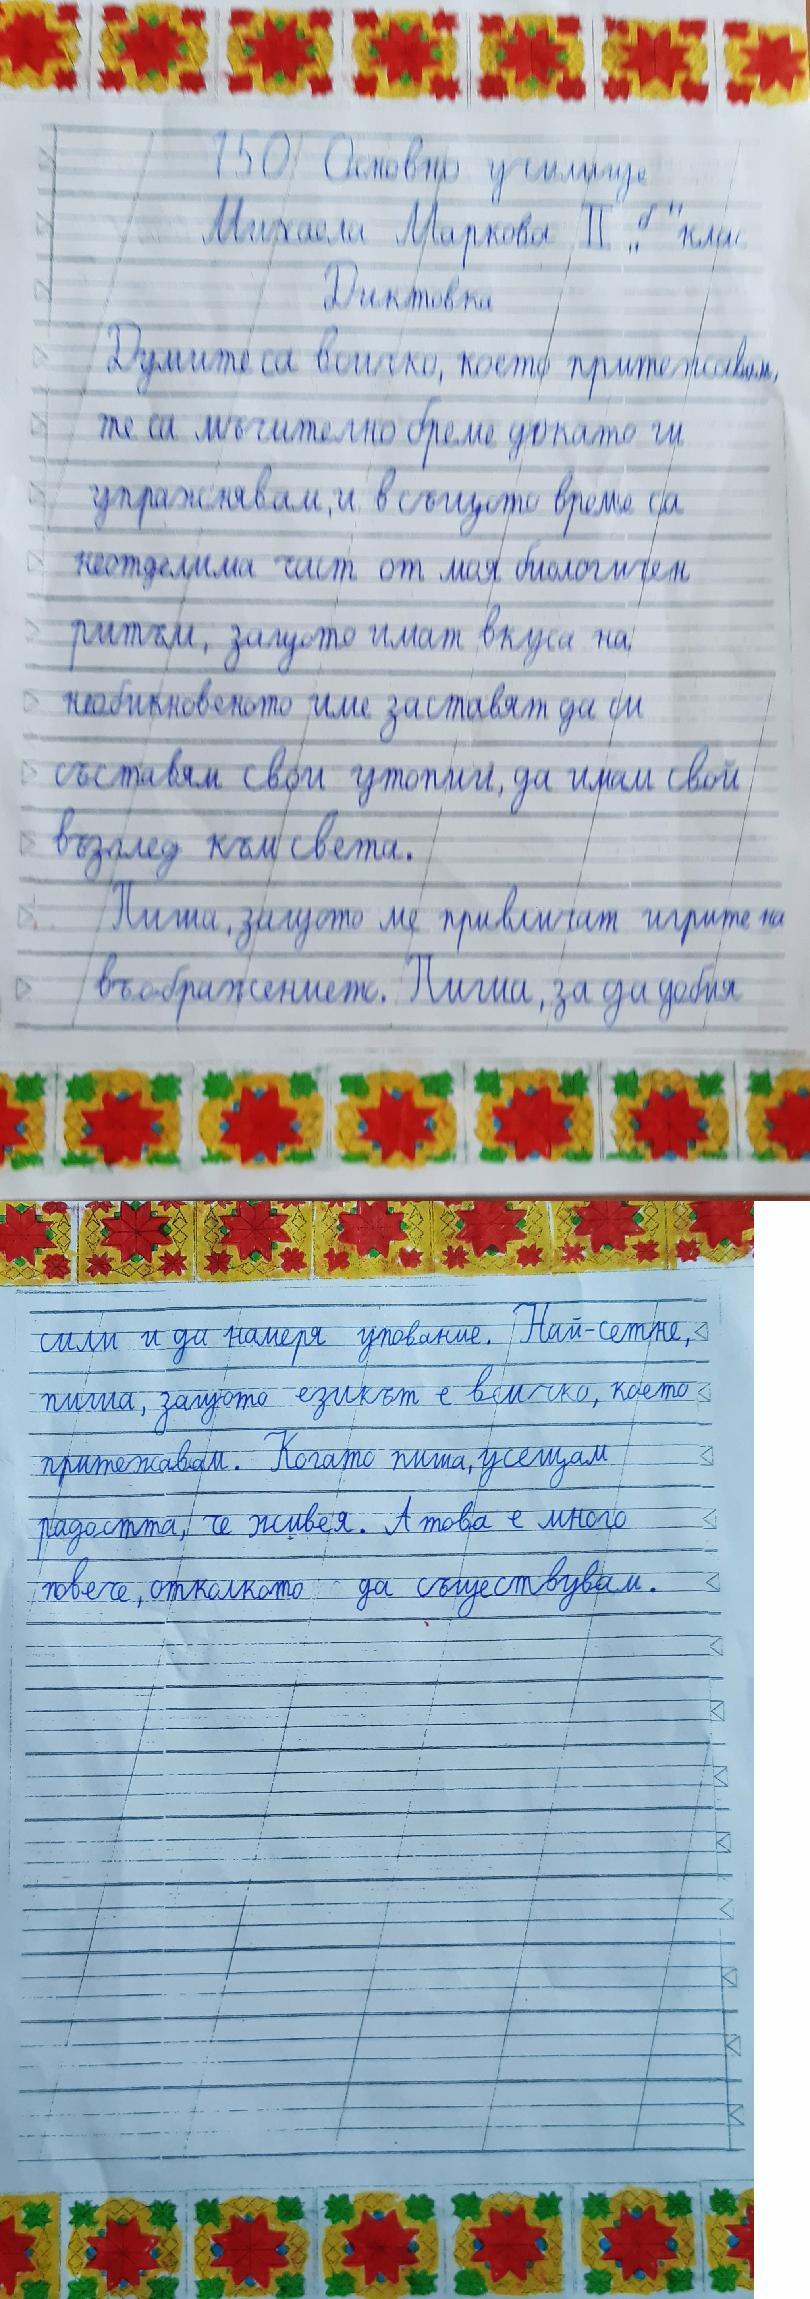 150 Основно училище
Михаела Маркова II „б" клас
Диктовка
Думите са всичко, което притежавам,
те са мъчително бреме докато ги
упражнявам, и в същото време са
неотделима част от моя биологичен
ритъм, защото имат вкуса на
необикновеното и ме заставят да си
съставям свои утопии, да имам свой
възглед към света.
Пиша, защото ме привличат игрите на
въображението. Пиша, за да добия
сили и да намеря упование. Най-сетне,
пиша, защото езикът е всичко, което
притежавам. Когато пиша, усещам
радостта, че живея. А това е много
повече, отколкото да съществувам.